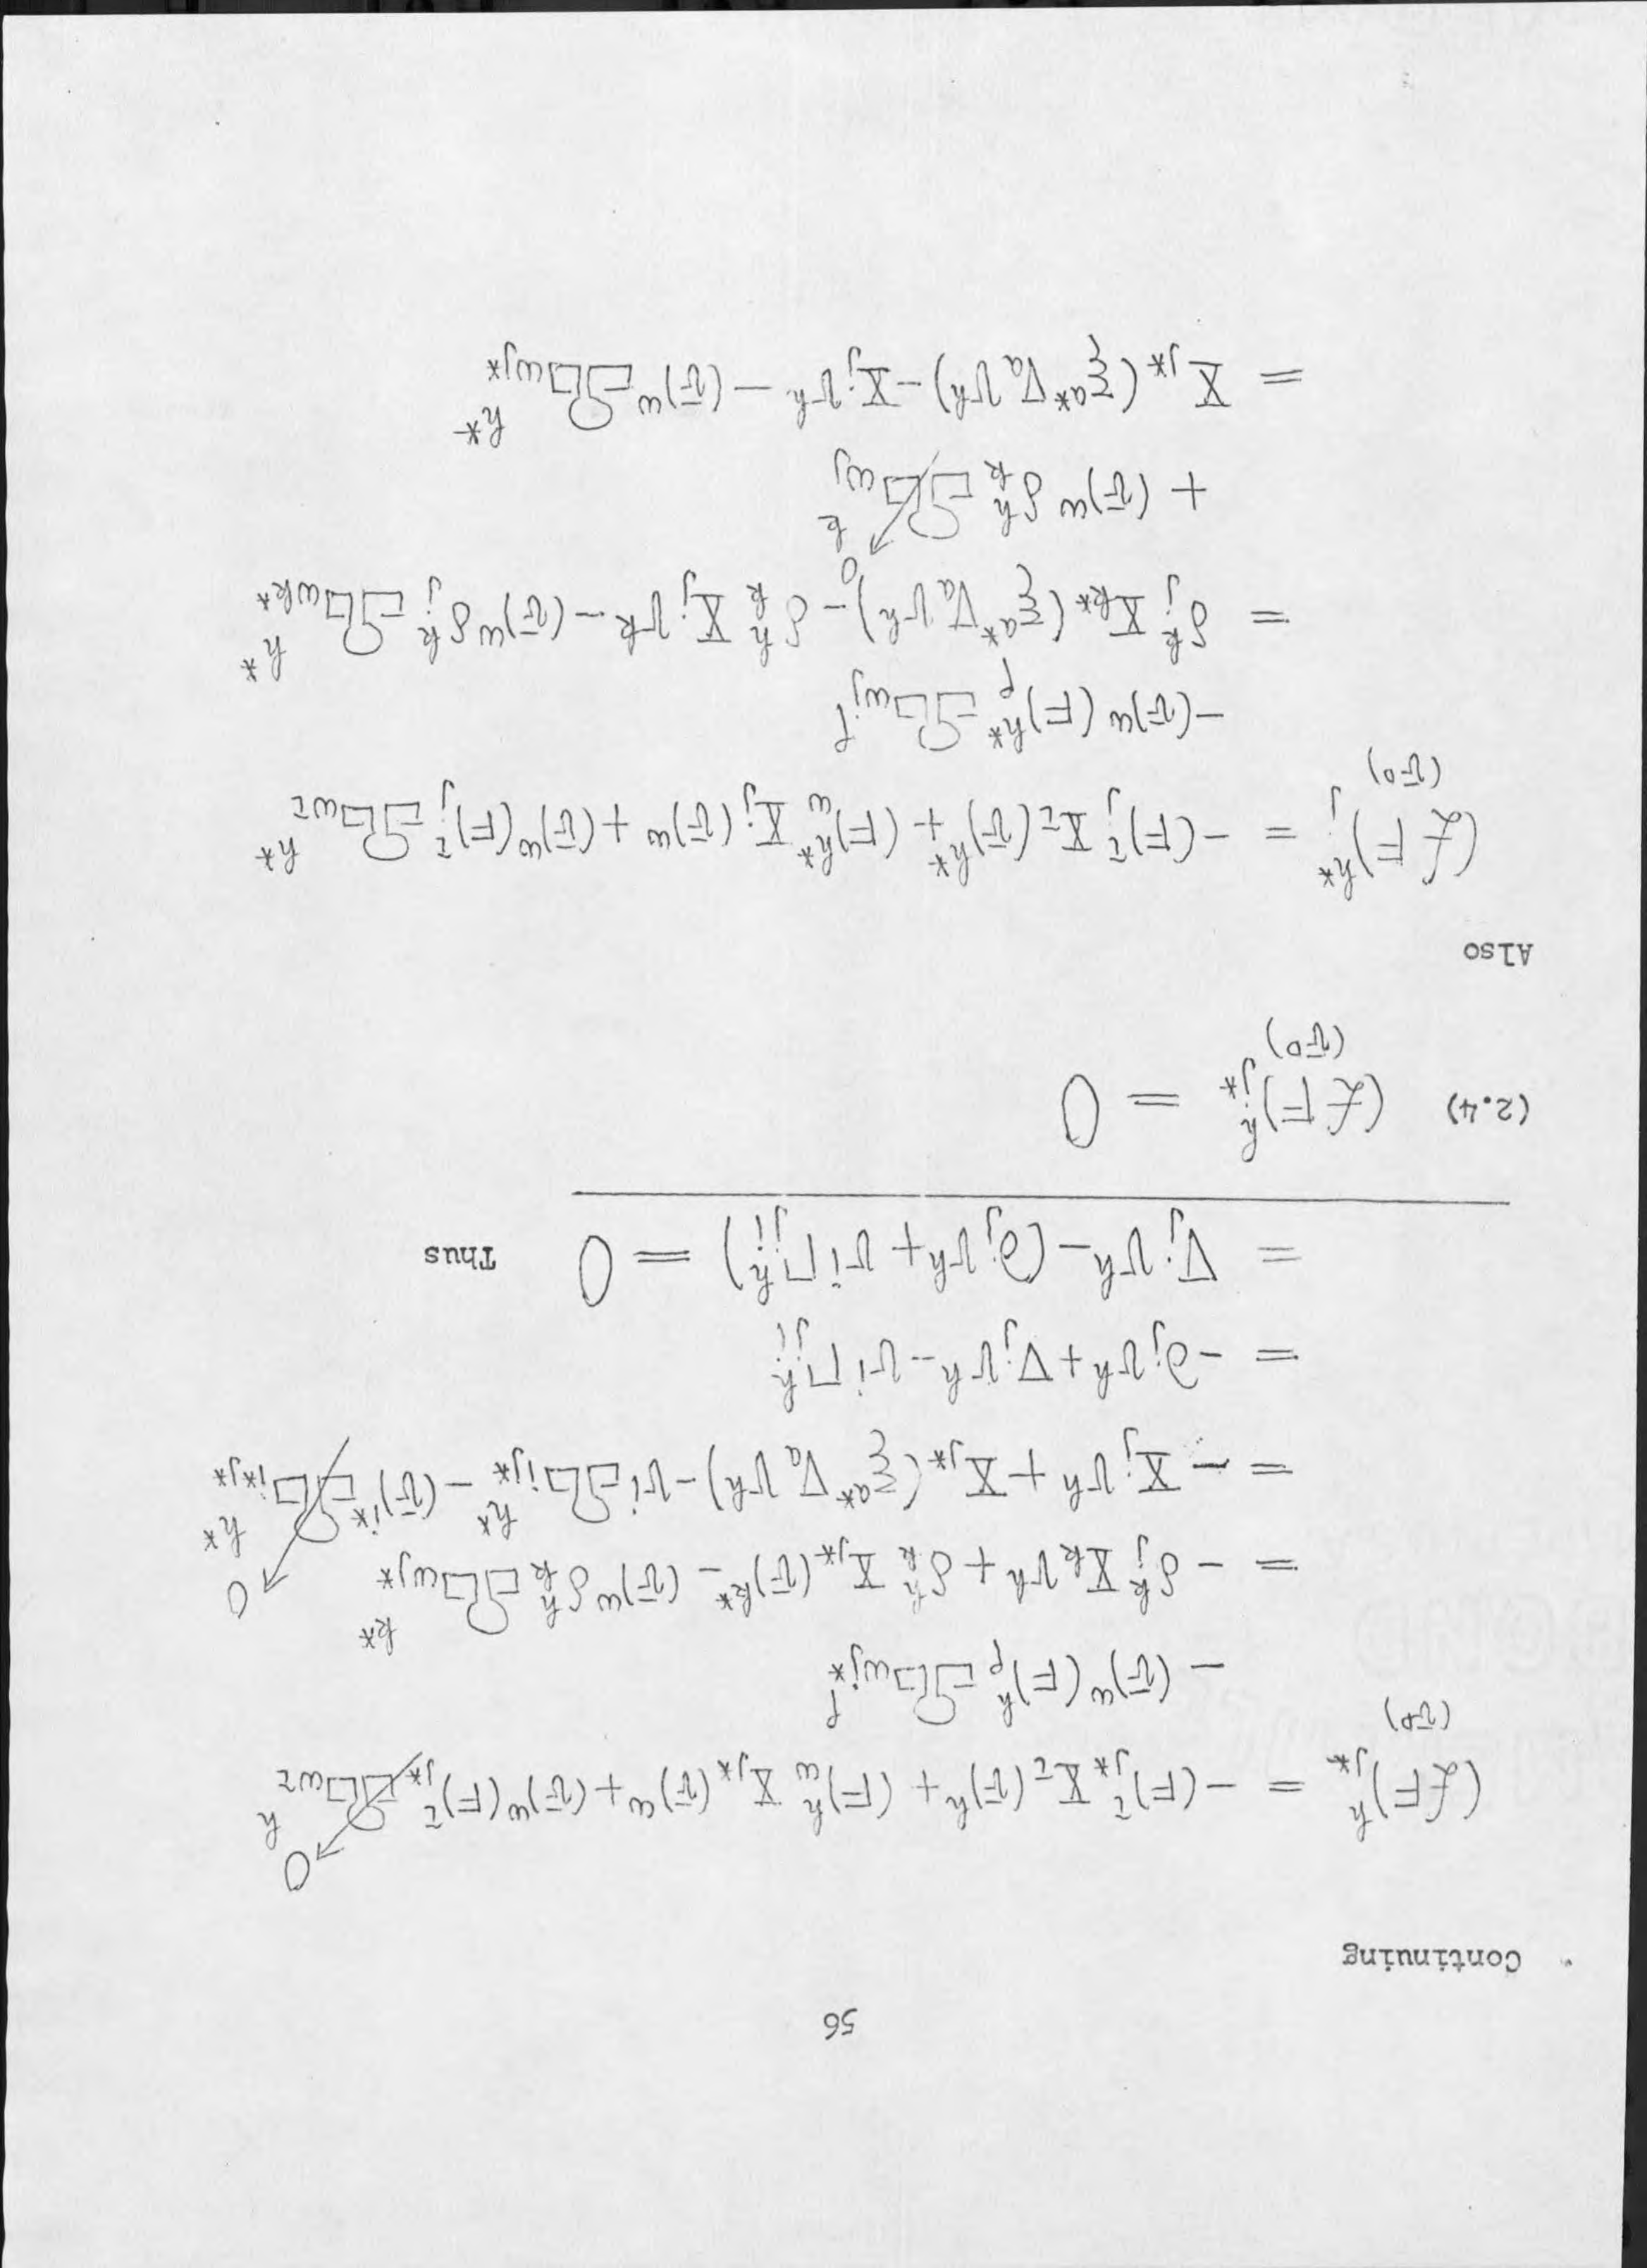 56
Continuing
(£F)^h_{j*} = -(F)^τ_{j*} X_τ (v̄)^h + (F)^h_ω X_{j*} (v̄)^ω + (v̄)^ω (F)^τ_{j*} Ω_{ωτ}^h → 0
- (v̄)^ω (F)^h_ρ Ω_{ωj*}^ρ
= -δ^k_j X_k v^h + δ^h_k X_{j*} (v̄)^{k*} - (v̄)^ω δ^h_k Ω_{ωj*}^{k*}
= -X_j v^h + X_{j*} (ξ^{a*} ∇_a v^h) - v^i Ω_{ij*}^{h*} - (v̄)^{i*} Ω_{i*j*}^{h*} → 0
= -∂_j v^h + ∇_j v^h - v^i Γ^h_{ji}
= ∇_j v^h - (∂_j v^h + v^i Γ^h_{ji}) = 0 Thus
(2.4) (£F)^h_{j*} = 0
(v̄^D)
Also
(£F)^{h*}_j = -(F)^τ_j X_τ (v̄)^{h*} + (F)^{h*}_ω X_j (v̄)^ω + (v̄)^ω (F)^τ_j Ω_{ωτ}^{h*}
(v̄^D)
-(v̄)^ω (F)^{h*}_ρ Ω_{ωj}^ρ
= δ^k_j X_{k*} (ξ^{a*} ∇_a v^h) - δ^h_k X_j v^k - (v̄)^ω δ^k_j Ω_{ωk*}^{h*}
+ (v̄)^ω δ^h_k Ω_{ωj}^k → 0
= X_{j*} (ξ^{a*} ∇_a v^h) - X_j v^h - (v̄)^ω Ω_{ωj*}^{h*}